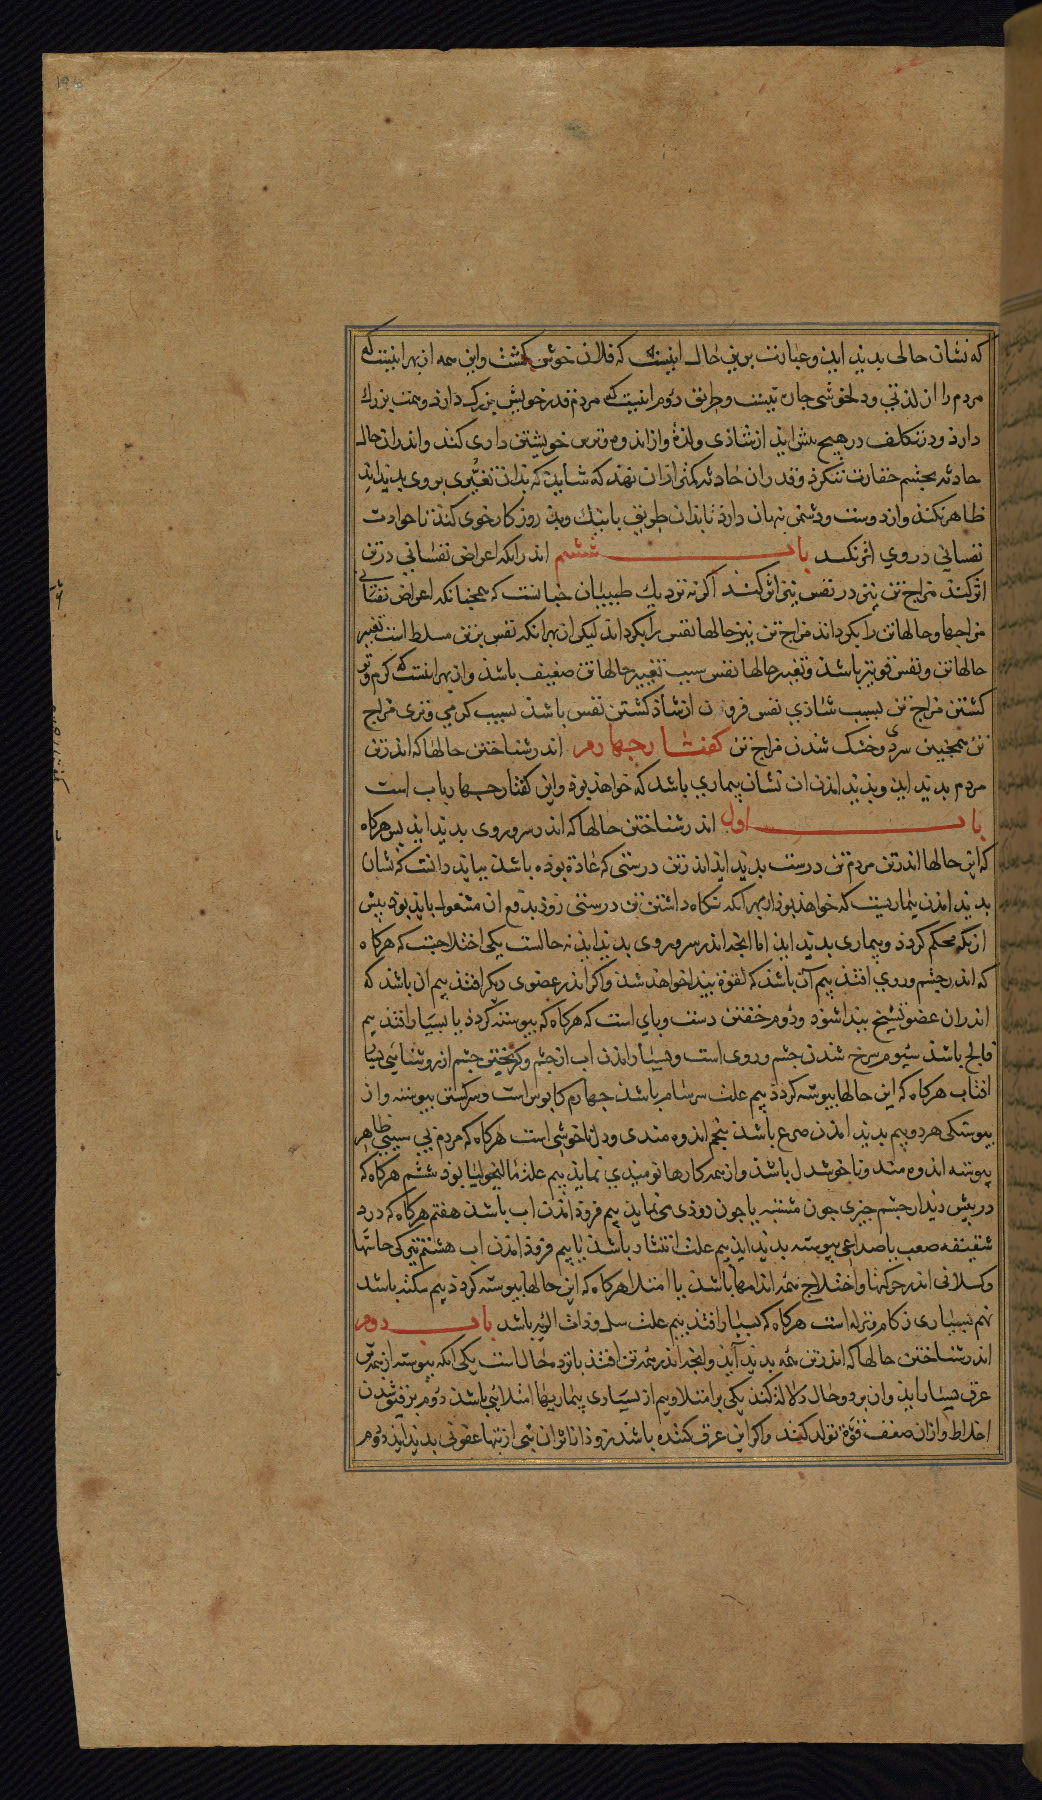 که نشان حالی بدید اید و عبارت برین حال اینست که فلان خوش گشت و این همه از بهر اینست که
مردم را از لذتی و دلخوشی جان نیست و طریق دوم اینست که مردم قدر خویش بزرک دارد و همت بزرك
دارد و بتکلف در هیچ پیش اید از شاذی و لذة و از اندوه و ترس خویشتن داری کند و اندران حال
حادثه بچشم حقارت ننکرد و قدر ان حادثه کمتر از ان نهد که شاید که بدان تغیری بروی بدید اید
ظاهر نکند و از دوست و دشمن نهان دارد تا بدان طریق با نیك و بد روزکار خوی کند تا حوادث
نفسانی در وی اثر نکند باب ششم اندر انکه اعراض نفسانی در تن
اثر کند مزاج تن نیز در نفس نیز اثر کند اکر نه نزدیك طبیبان جنانست که همجنانکه اعراض نفسانی
مزاجها و حالهاتن را بکرداند مزاج تن نیز حالها نفس را بکرداند لیکن از بهر انکه نفس بر تن مسلط است تغییر
حالها تن و نفس قویتر باشد و تغییر حالها نفس سبب تغییر حالها تن ضعیف باشد و از بهر اینست که کرم و تر
کشتن مزاج تن بسبب شاذی نفس فزون از شاذ کشتن نفس باشد بسبب کرمی و تری مزاج
تن همجنین سردی و خشك شدن مزاج تن کفتار جهارم اندر شناختن حالها که اندر تن
مردم بدید اید و بدید امدن ان نشان بیماری باشد که خواهد بود و این کفتار جهار باب است
باب اول اندر شناختن حالها که اندر سر و روی بدید اید بس هرکاه
که این حالها اندر تن مردم تن درست بدید اید اندر تن درستی که عادة بوده باشد بباید دانست که نشان
بدید امدن بیماریست که خواهد بود از بهر انکه نکاه داشتن تن درستی زود بدفع ان مشغول باید بود پیش
از انکه محکم کردد و بیماری بدید اید اما انجه اندر سر و روی بدید اید نه حالست یکی اختلاجست که هرکاه
که اندر جشم و روی افتد بیم آن باشد که لقوه پیدا خواهد شد و اکر اندر عضوی دیکر افتد بیم ان باشد که
اندران عضو تشنج پیدا شود و دوم خفتن دست و پای است که هرکاه که پیوسته کردد یا بسیار افتد بیم
فالج باشد سیوم سرخ شدن جشم و روی است و بسیار امدن اب از جشم و کریختن جشم از روشنایی
افتاب هرکاه که این حالها پیوسته کردد بیم علت سرسام باشد جهارم کابوس است و سرکشتن پیوسته و از
پیوستکی هردو بیم بدید امدن صرع باشد پنجم اندوه مندی و دل ناخوشی است هرکاه که مردم بی سببی ظاهر
پیوسته اندوه مند و ناخوشدل باشد و از همه کارها نومیدی نماید بیم علة مالیخولیا بود ششم هرکاه که
در پیش دیدار جشم جیزی جون پشه یا جون دودی می نماید بیم فرود امدن اب باشد هفتم هرکاه که درد
شقیقه صعب یا صداعی پیوسته بدید اید بیم علت انتشار باشد یا بیم فرود امدن اب هشتم تیرکی حاستها
و کسلانی اندر حرکتها و اختلاج همه اندامها باشد با امتلا هرکاه که این حالها پیوسته کردد بیم سکته باشد
نهم بسیاری زکام و نزله است هرکاه که بسیار افتد بیم علت سل و ذات الریه باشد باب دوم
اندر شناختن حالها که اندر تن همه بدید آید و انجه اندر همه تن افتد پانزده حالست یکی انکه پیوسته از همه تن
عرق بسیار اید و ان بر دو حال دلالة کند یکی بر امتلا و بیم از بسیاری بیماریهاء امتلائی باشد دوم بر رقیق شدن
اخلاط و ازان ضعف قوة تولد کند و اکر این عرق کنده باشد زود از اثر ان تبی از تبها عفونی بدید اید دوم